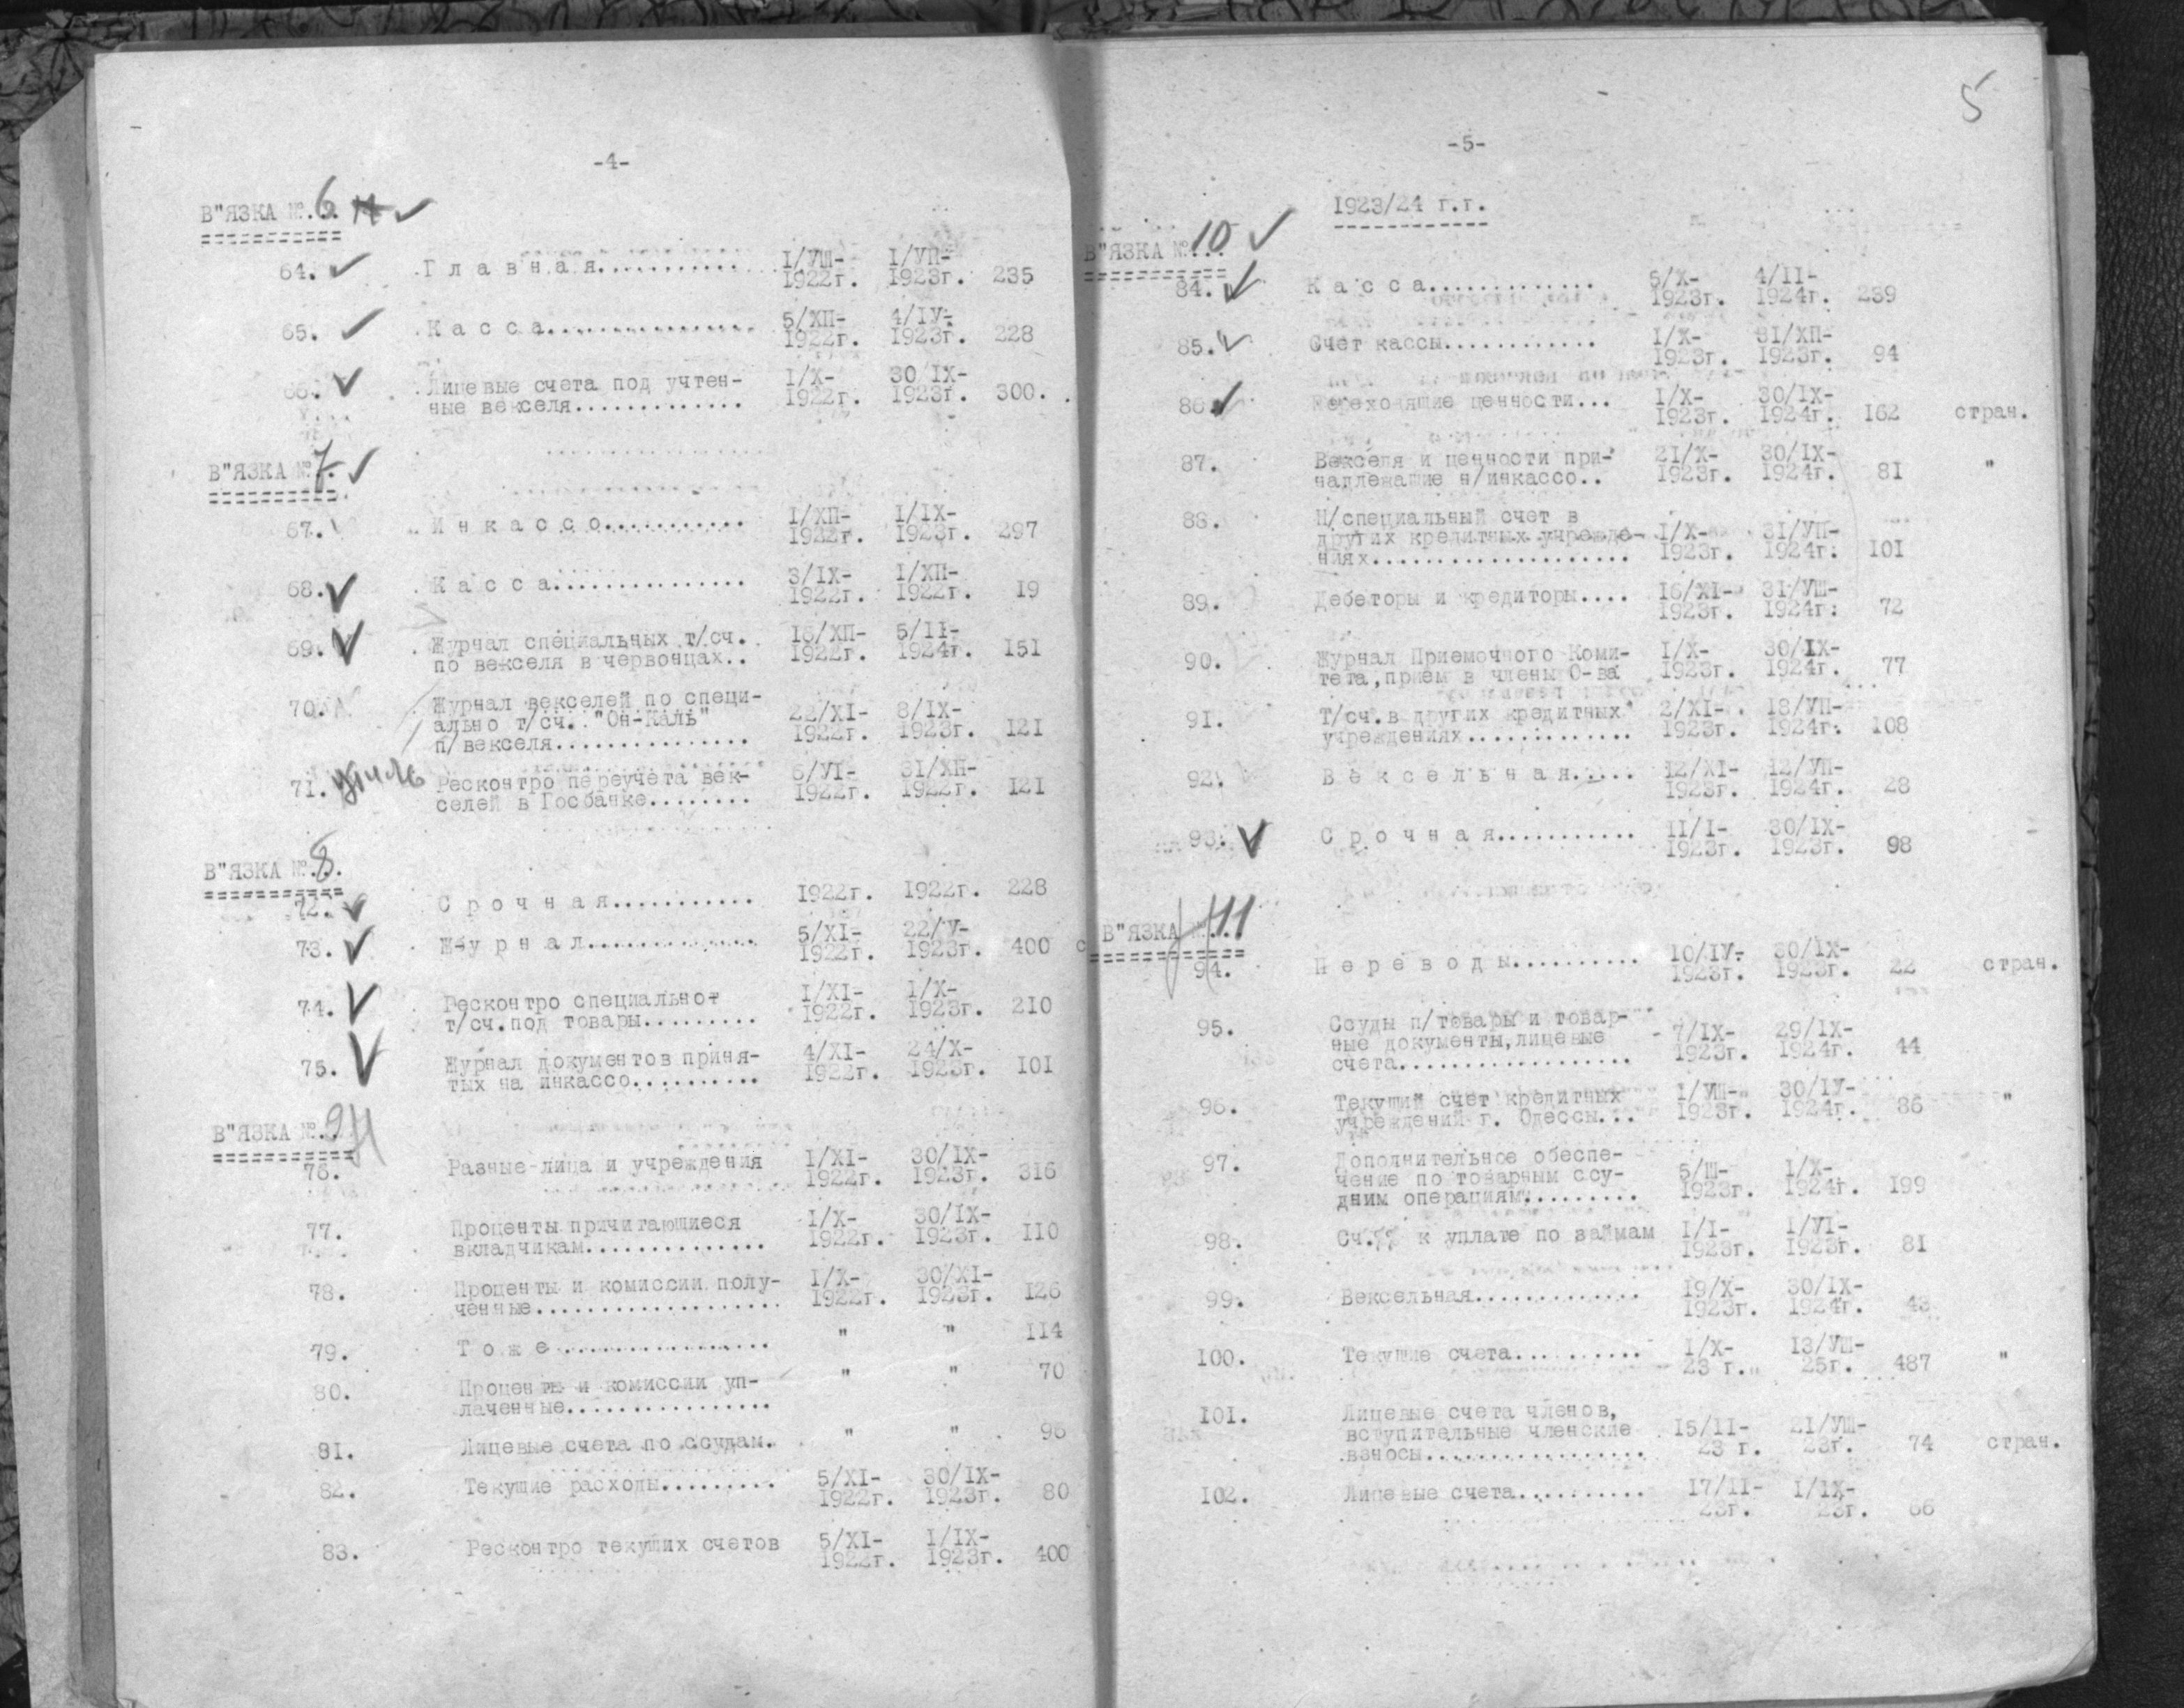 -4-
В"ЯЗКА №.6. ✓
64. ✓ Главная........... I/УШ- I/УП-
1922г. 1923г. 235
65. ✓ Касса................ 5/ХП- 4/IУ-
1922г. 1923г. 228
66. ✓ Лицевые счета под учтен- I/X- 30/IX-
ные векселя............. 1922г. 1923г. 300.
В"ЯЗКА №7. ✓
67. Инкассо........... I/ХП- I/IX-
1922г. 1923г. 297
68. ✓ Касса............... 3/IX- I/ХП-
1922г. 1922г. 19
69. ✓ Журнал специальных т/сч. 16/ХП- 5/II-
по векселя в червонцах.. 1922г. 1924г. 151
70. Журнал векселей по специ-
ально т/сч. "Он-Каль" 22/XI- 8/IX-
п/векселя............... 1922г. 1923г. 121
71. утиль Ресконтро переучета век- 6/УI- 31/ХП-
селей в Госбанке........ 1922г. 1922г. 121
В"ЯЗКА №.8.
72. ✓ Срочная........... 1922г. 1922г. 228
73. ✓ Журнал.............. 5/XI- 22/У-
1922г. 1923г. 400
74. ✓ Ресконтро специально- I/XI- I/X-
т/сч.под товары......... 1922г. 1923г. 210
75. ✓ Журнал документов приня- 4/XI- 24/X-
тых на инкассо.......... 1922г. 1923г. 101
В"ЯЗКА №.9
76. Разные лица и учреждения I/XI- 30/IX-
1922г. 1923г. 316
77. Проценты причитающиеся I/X- 30/IX-
вкладчикам.............. 1922г. 1923г. 110
78. Проценты и комиссии полу- I/X- 30/XI-
ченные................... 1922г. 1923г. 126
79. Тоже................. " " 114
80. Проценты и комиссии уп- " " 70
лаченные................
81. Лицевые счета по ссудам. " " 96
82. Текущие расходы......... 5/XI- 30/IX-
1922г. 1923г. 80
83. Ресконтро текущих счетов 5/XI- I/IX-
1922г. 1923г. 400
5
-5-
1923/24 г.г.
В"ЯЗКА №10 ✓
84. ✓ Касса............. 5/X- 4/II-
1923г. 1924г. 239
85. ✓ Счет кассы............ I/X- 31/ХП-
1923г. 1923г. 94
86. ✓ Переходящие ценности... I/X- 30/IX-
1923г. 1924г. 162 стран.
87. Векселя и ценности при- 21/X- 30/IX-
надлежащие н/инкассо.. 1923г. 1924г. 81 "
88. Н/специальный счет в
других кредитных учрежде- I/X- 31/УП-
ниях.................... 1923г. 1924г. 101
89. Дебеторы и кредиторы.... 16/XI- 31/УШ-
1923г. 1924г. 72
90. Журнал Приемочного Коми- I/X- 30/IX-
тета,прием в члены О-ва 1923г. 1924г. 77
91. Т/сч.в других кредитных 2/XI- 18/УП-
учреждениях............. 1923г. 1924г. 108
92. Вексельная..... 12/XI- 12/УП-
1923г. 1924г. 28
93. ✓ Срочная........... II/I- 30/IX-
1923г. 1923г. 98
В"ЯЗКА №.11
94. Переводы.......... 10/IУ- 30/IX-
1923г. 1923г. 22 стран.
95. Ссуды п/товары и товар-
ные документы,лицевые 7/IX- 29/IX-
счета.................... 1923г. 1924г. 44
96. Текущий счет кредитных I/УШ- 30/IУ-
учреждений г. Одессы... 1923г. 1924г. 86 "
97. Дополнительное обеспе-
чение по товарным ссу- 5/Ш- I/X-
дним операциям.......... 1923г. 1924г. 199
98. Сч. к уплате по займам I/I- I/УI-
1923г. 1923г. 81
99. Вексельная.............. 19/X- 30/IX-
1923г. 1924г. 43
100. Текущие счета.......... I/X- 13/УШ-
23 г. 25г. 487 "
101. Лицевые счета членов,
вступительные членские 15/II- 21/УШ-
взносы................. 23 г. 23г. 74 стран.
102. Лицевые счета.......... 17/II- I/IX-
23г. 23г. 66